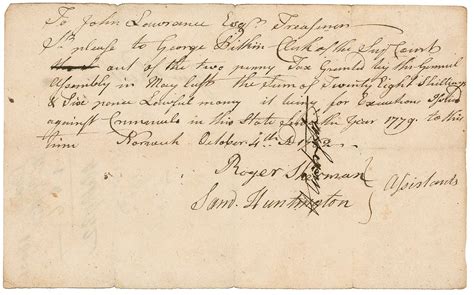 To John Lawrance Esqr Treasurer
Sr please to George Pitkin Clerk of the Supr Court
out of the two penny Tax Granted by the General
Assembly in May last the Sum of Twenty Eight Shillings
& Six pence Lawful money it being for Executions
against Criminals in this State in the Year 1779 to this
time Norwich October 4th
Roger Sherman
Saml Huntington
Assistants